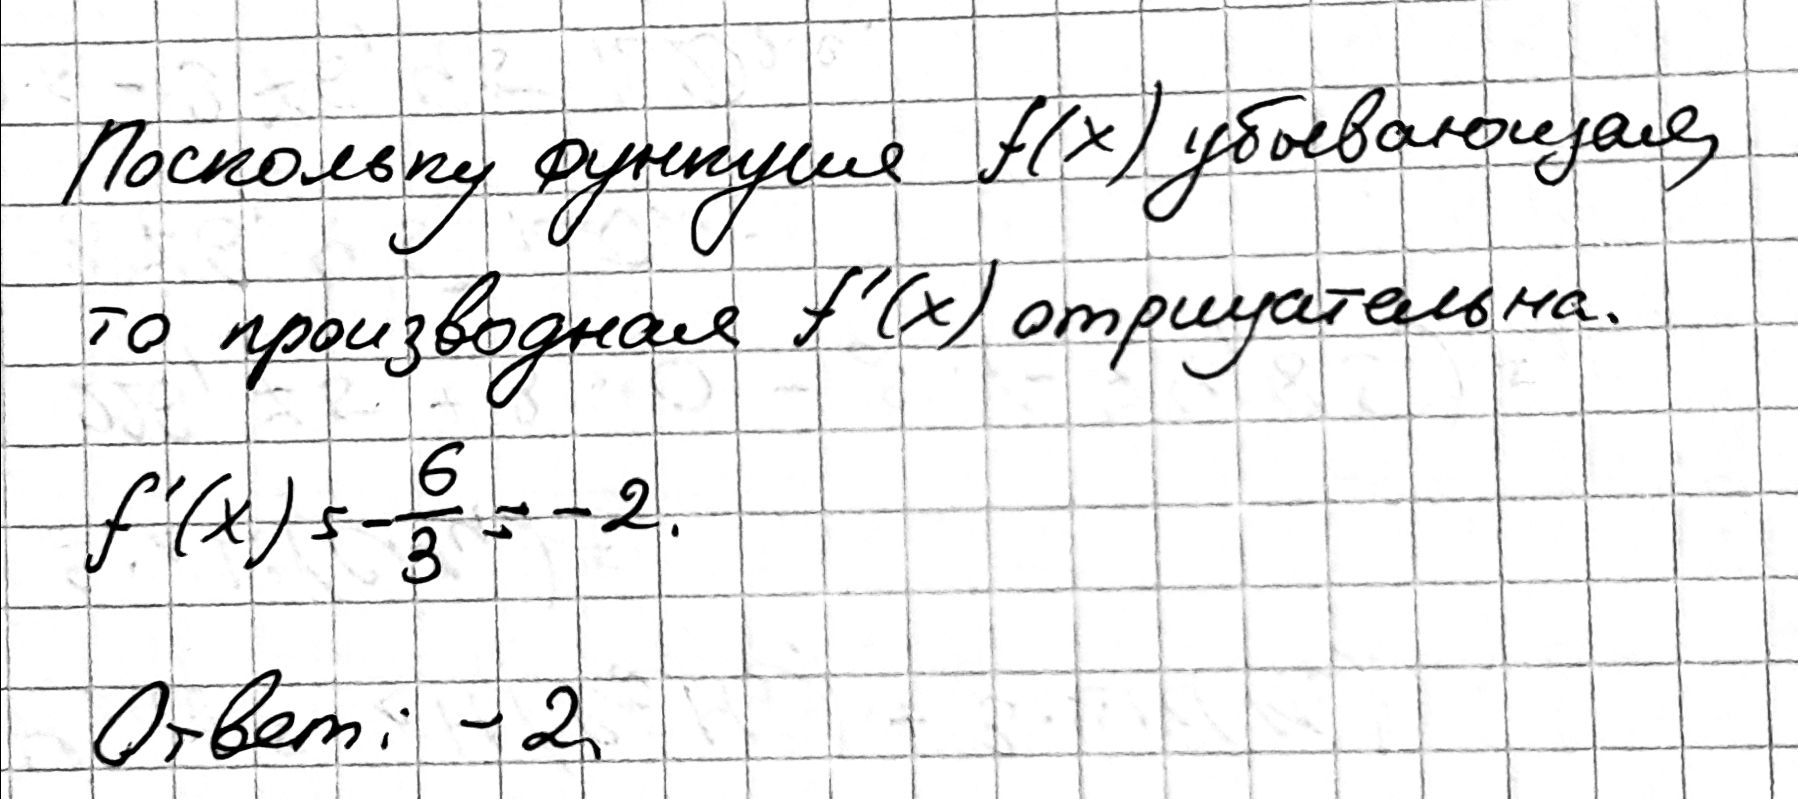 Поскольку функция f(x) убывающая,
то производная f'(x) отрицательна.
f'(x) = -6/3 = -2.
Ответ: -2.